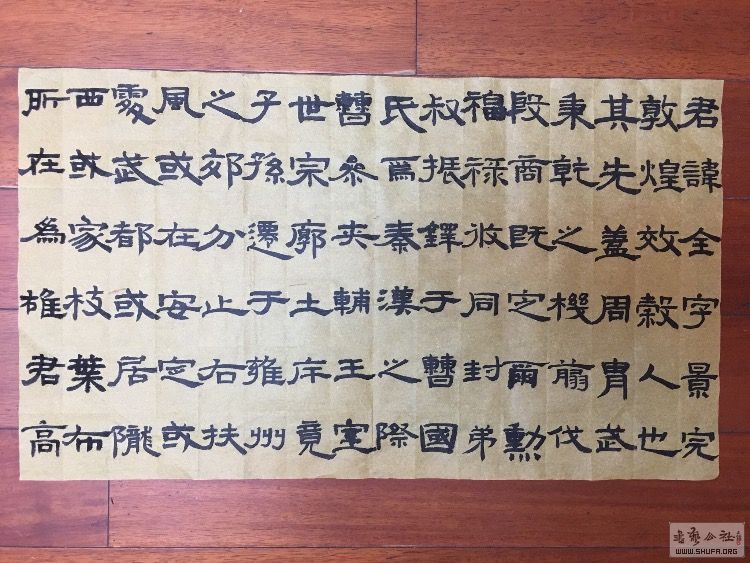 君諱全字景完
敦煌效穀人也
其先蓋周胄武
秉乾之機翦伐
殷商既定爾勳
福祿攸同封弟
叔振鐸于曹國
氏焉秦漢之際
曹參夾輔王室
世宗廓土斥竟
子孫遷于雍州
之郊分止右扶
風或在安定或
處武都或居隴
西或家枝葉布
所在為雄君高
书艺公社
WWW.SHUFA.ORG